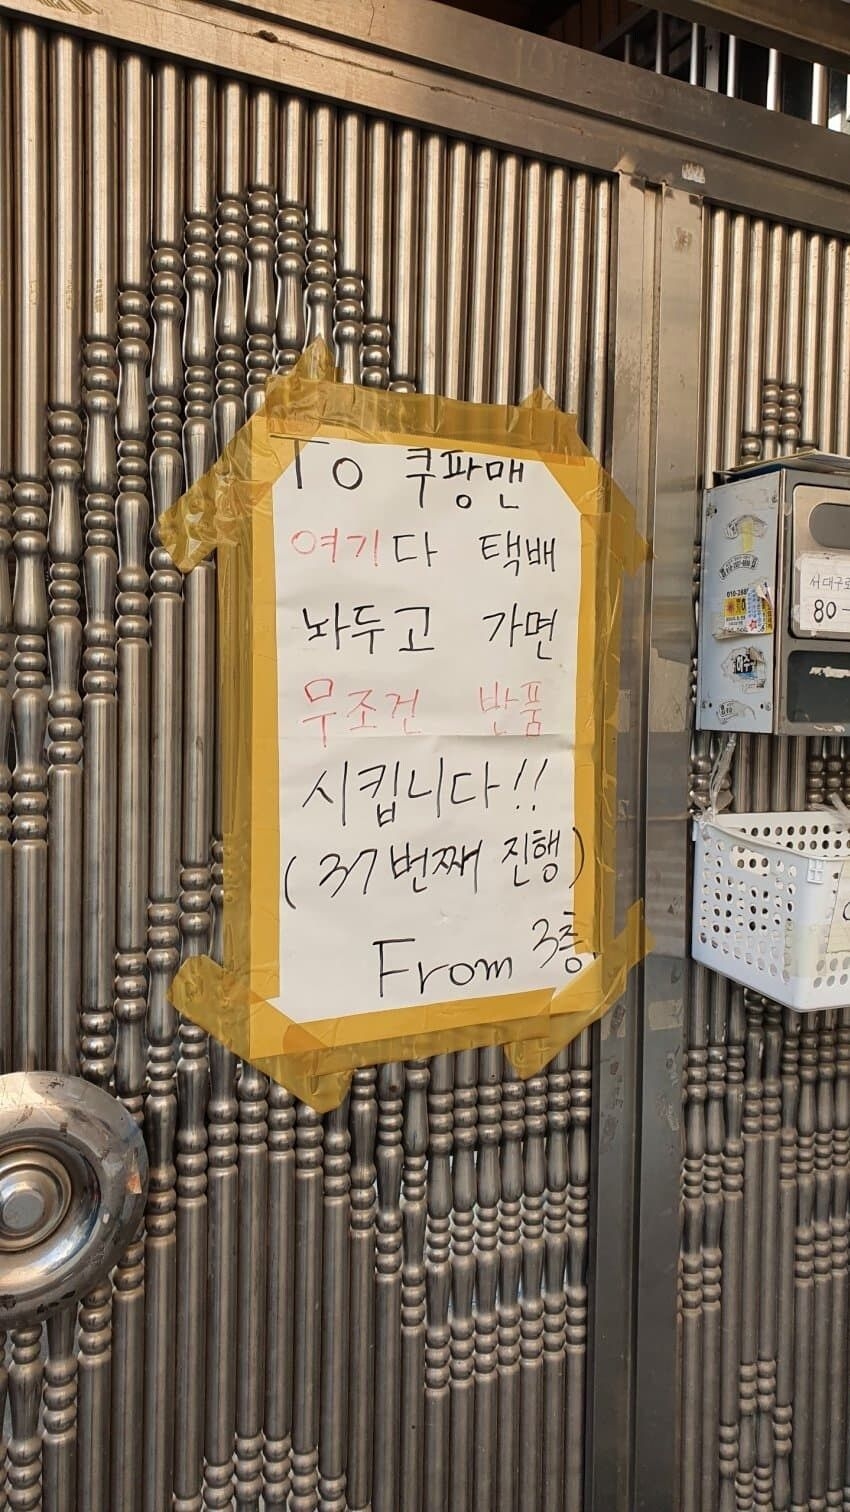 To 쿠팡맨
여기다 택배
놔두고 가면
무조건 반품
시킵니다!!
(37번째 진행)
From 3층
서대구로
80-